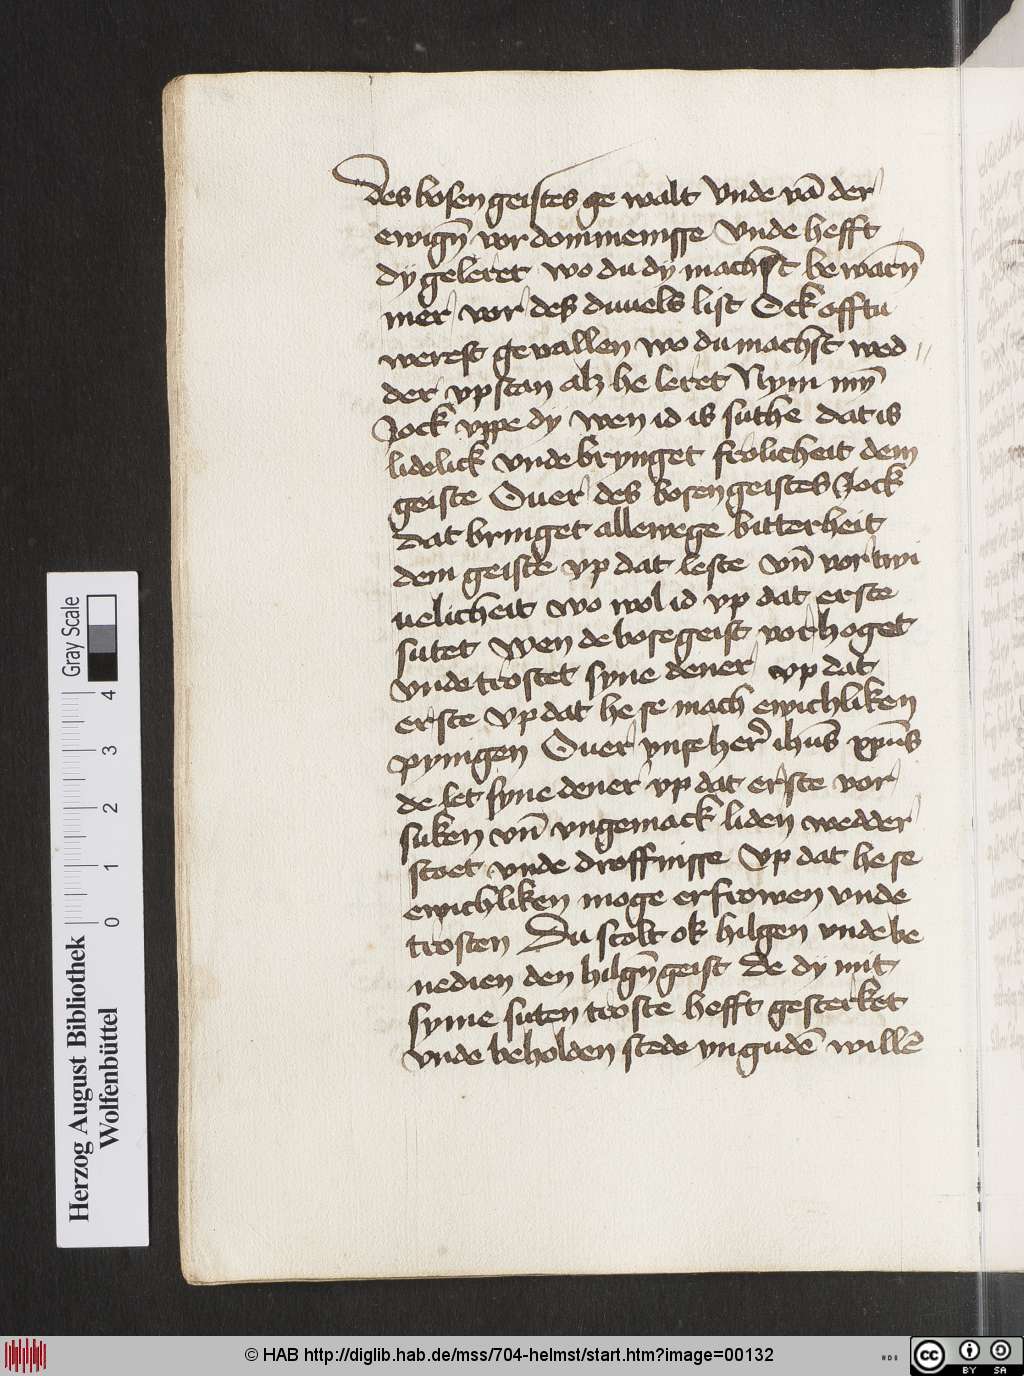 des bosen geistes ge walt Vnde vā der
ewigē vor dommenisse Vnde hefft
dy geleret wo du dy machst be warē
mer vor des duuels list Ock offtu
werest geuallen wo du machst wed //
der vpstan alz he leret Nym mȳ
Jock vppe dy wen id is suthe dat is
lidelick vnde brynget frolicheit dem
geiste Ouer des bosen geistes Jock
dat bringet allewege bitterheit
dem geiste vp dat leste vn̄ vortwi
uelicheit wo wol id vp dat erste
sutet Wen de bose geist vorhoget
vnde trostet syne dener vp dat
erste Vp dat he se mach ewichliken
pynigen Ouer vnse her̄ ihūs xp̄us
de let syne dener vp dat erste vor
suken vn̄ vngemack liden wedder
stoet vnde droffnisse Vp dat he se
ewichliken moge erfrowen vnde
trosten Du scolt ok hilgen vnde be
nedien den hilgē geist de dy mit
syme suten troste hefft gesterket
vnde beholden stede yn gudē willē
Herzog August Bibliothek
Wolfenbüttel
Gray Scale
0 1 2 3 4
© HAB http://diglib.hab.de/mss/704-helmst/start.htm?image=00132
cc BY SA